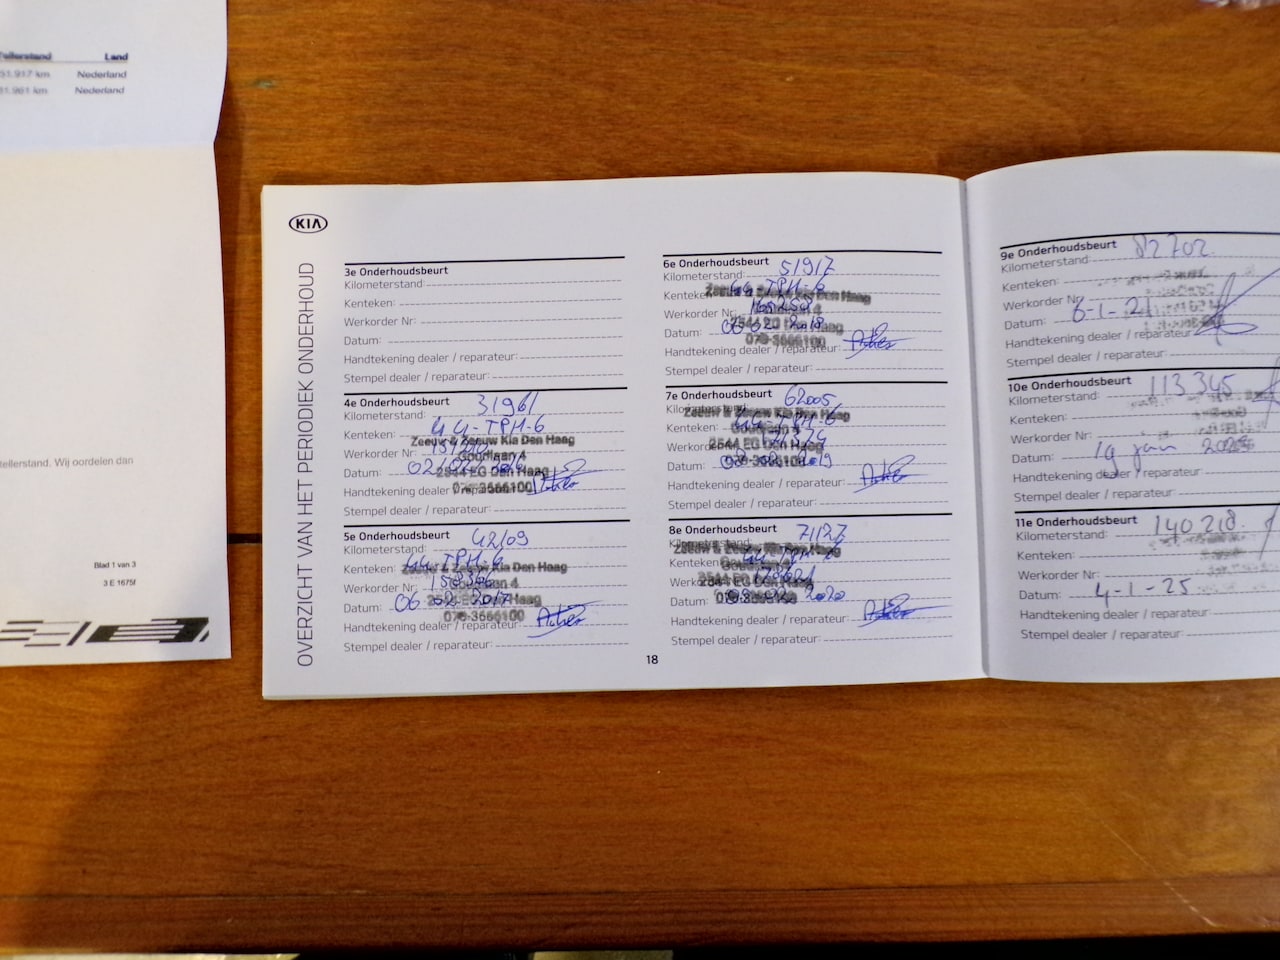 Tellerstand Land
51.917 km Nederland
31.961 km Nederland
tellerstand. Wij oordelen dan
Blad 1 van 3
3 E 1675f
KIA
OVERZICHT VAN HET PERIODIEK ONDERHOUD
3e Onderhoudsbeurt
Kilometerstand:
Kenteken:
Werkorder Nr:
Datum:
Handtekening dealer / reparateur:
Stempel dealer / reparateur:
4e Onderhoudsbeurt
Kilometerstand: 31961
Kenteken: 44-TPH-6
Zeeuw & Zeeuw Kia Den Haag
Werkorder Nr:
Goudlaan 4
Datum: 02
2544 EG Den Haag
Handtekening dealer / reparateur:
070-3666100
Stempel dealer / reparateur:
5e Onderhoudsbeurt
Kilometerstand: 42109
Kenteken: 44-TPH-6
Zeeuw & Zeeuw Kia Den Haag
Werkorder Nr:
Goudlaan 4
Datum: 06 02 2017
2544 EG Den Haag
070-3666100
Handtekening dealer / reparateur:
Stempel dealer / reparateur:
6e Onderhoudsbeurt
Kilometerstand: 51917
Kenteken: 44-TPH-6
Zeeuw & Zeeuw Kia Den Haag
Werkorder Nr:
Goudlaan 4
Datum: 2018
2544 EG Den Haag
070-3666100
Handtekening dealer / reparateur:
Stempel dealer / reparateur:
7e Onderhoudsbeurt
Kilometerstand: 62005
Zeeuw & Zeeuw Kia Den Haag
Kenteken: 44-TPH-6
Goudlaan 4
Werkorder
2544 EG Den Haag
Datum: 2019
070-3666100
Handtekening dealer / reparateur:
Stempel dealer / reparateur:
8e Onderhoudsbeurt
Kilometerstand: 71127
Zeeuw & Zeeuw Kia Den Haag
Kenteken: 44-TPH-6
Goudlaan 4
Werkorder
2544 EG Den Haag
Datum: 2020
Handtekening dealer / reparateur:
Stempel dealer / reparateur:
18
9e Onderhoudsbeurt
Kilometerstand: 82702.
Kenteken:
Werkorder Nr:
Datum: 6-1-21
Handtekening dealer / reparateur:
Stempel dealer / reparateur:
10e Onderhoudsbeurt
Kilometerstand: 113345
Kenteken:
Werkorder Nr:
Datum: 19
Handtekening dealer / reparateur:
Stempel dealer / reparateur:
11e Onderhoudsbeurt
Kilometerstand: 140218.
Kenteken:
Werkorder Nr:
Datum: 4-1-25
Handtekening dealer / reparateur:
Stempel dealer / reparateur: